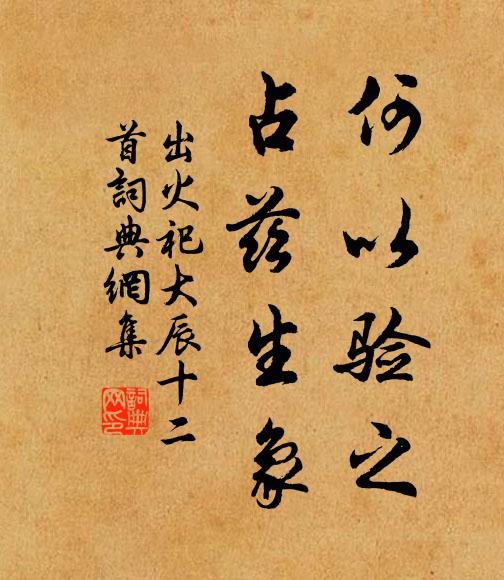 何以验之
占兹生象
出火祀大辰十二
首詞典網集
詞典
网印